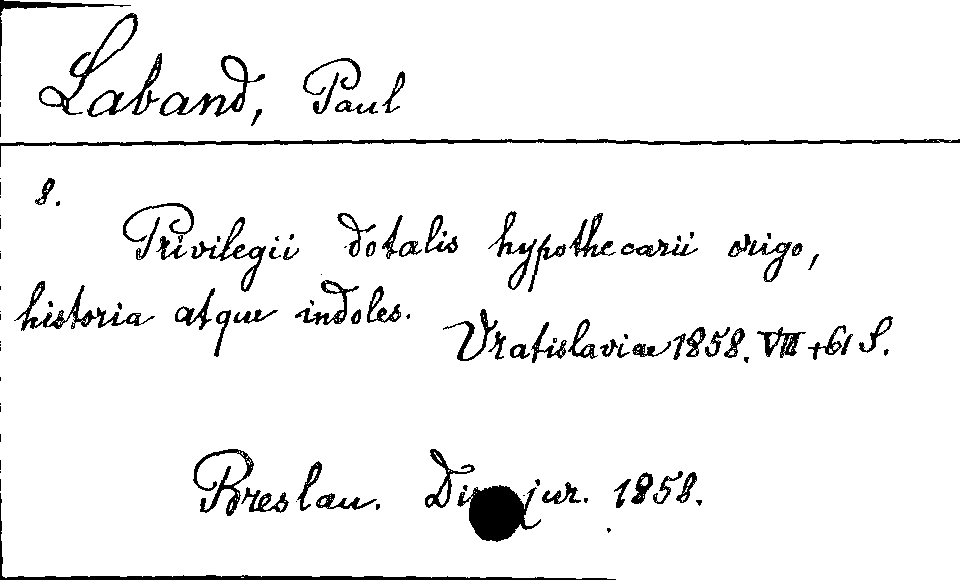 Laband, Paul
8.
Privilegii dotalis hypothecarii origo,
historia atque indoles.
Vratislaviae 1858. VIII + 61 S.
Breslau. jur. 1858.